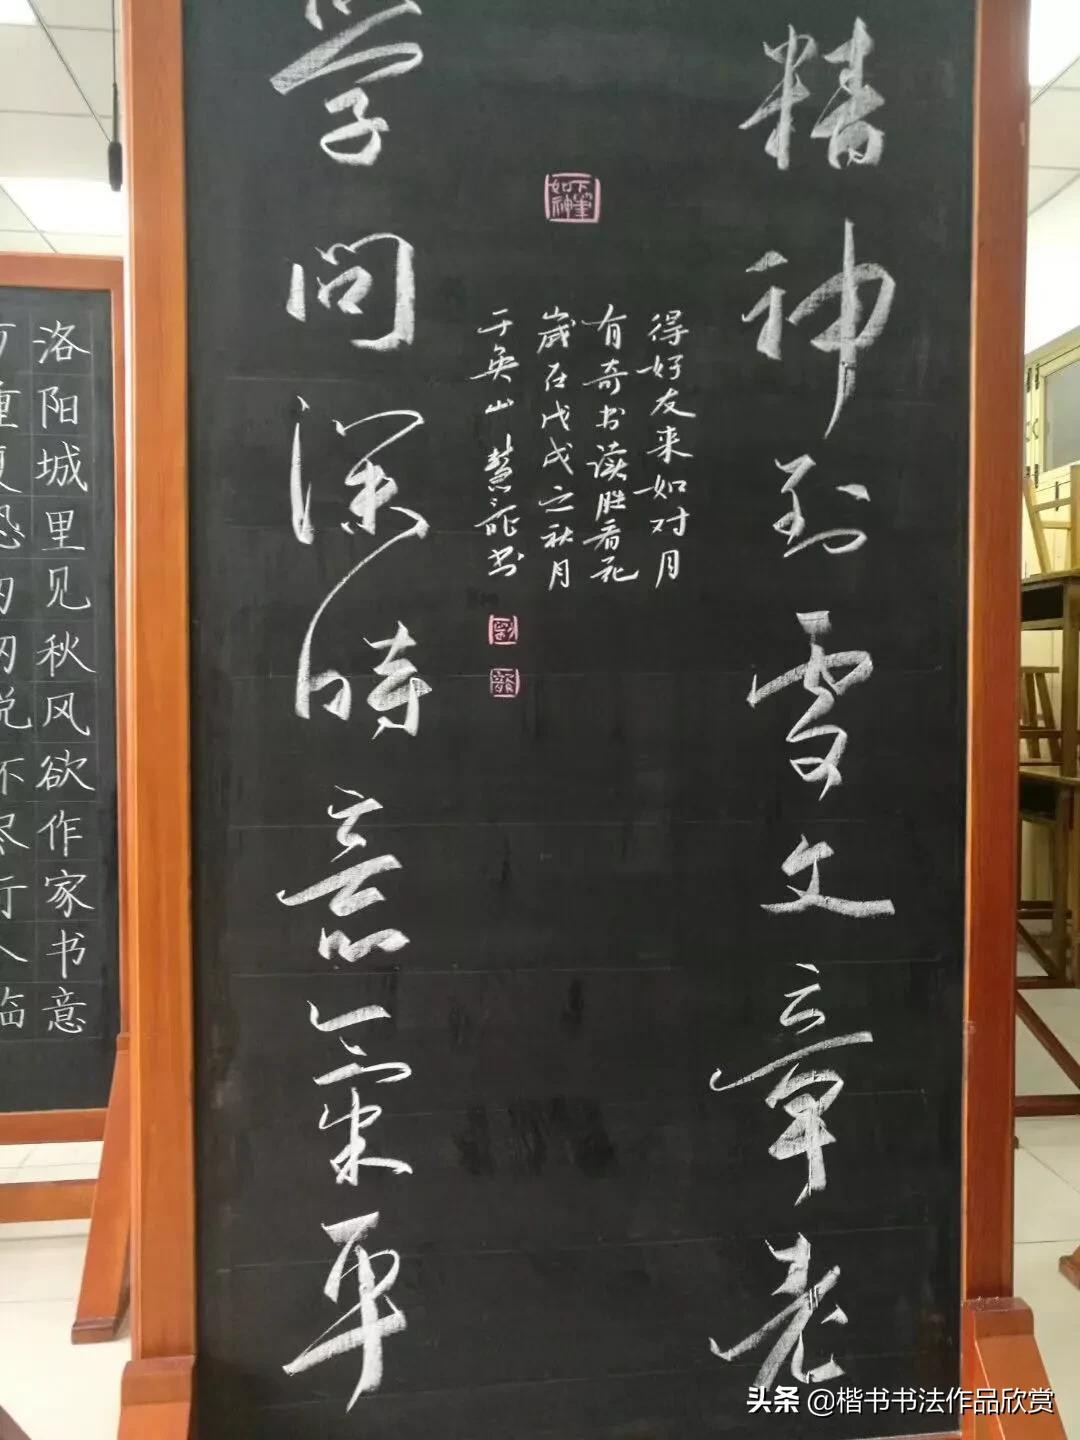 精神到處文章老
得好友来如对月
有奇书读胜看花
歲在戊戌之秋月
于英山慧龍书
下筆如神
劉
龍
学问深时意氣平
洛阳城里见秋风欲作家书意
万重复恐匆匆说不尽行人临
头条 @楷书书法作品欣赏